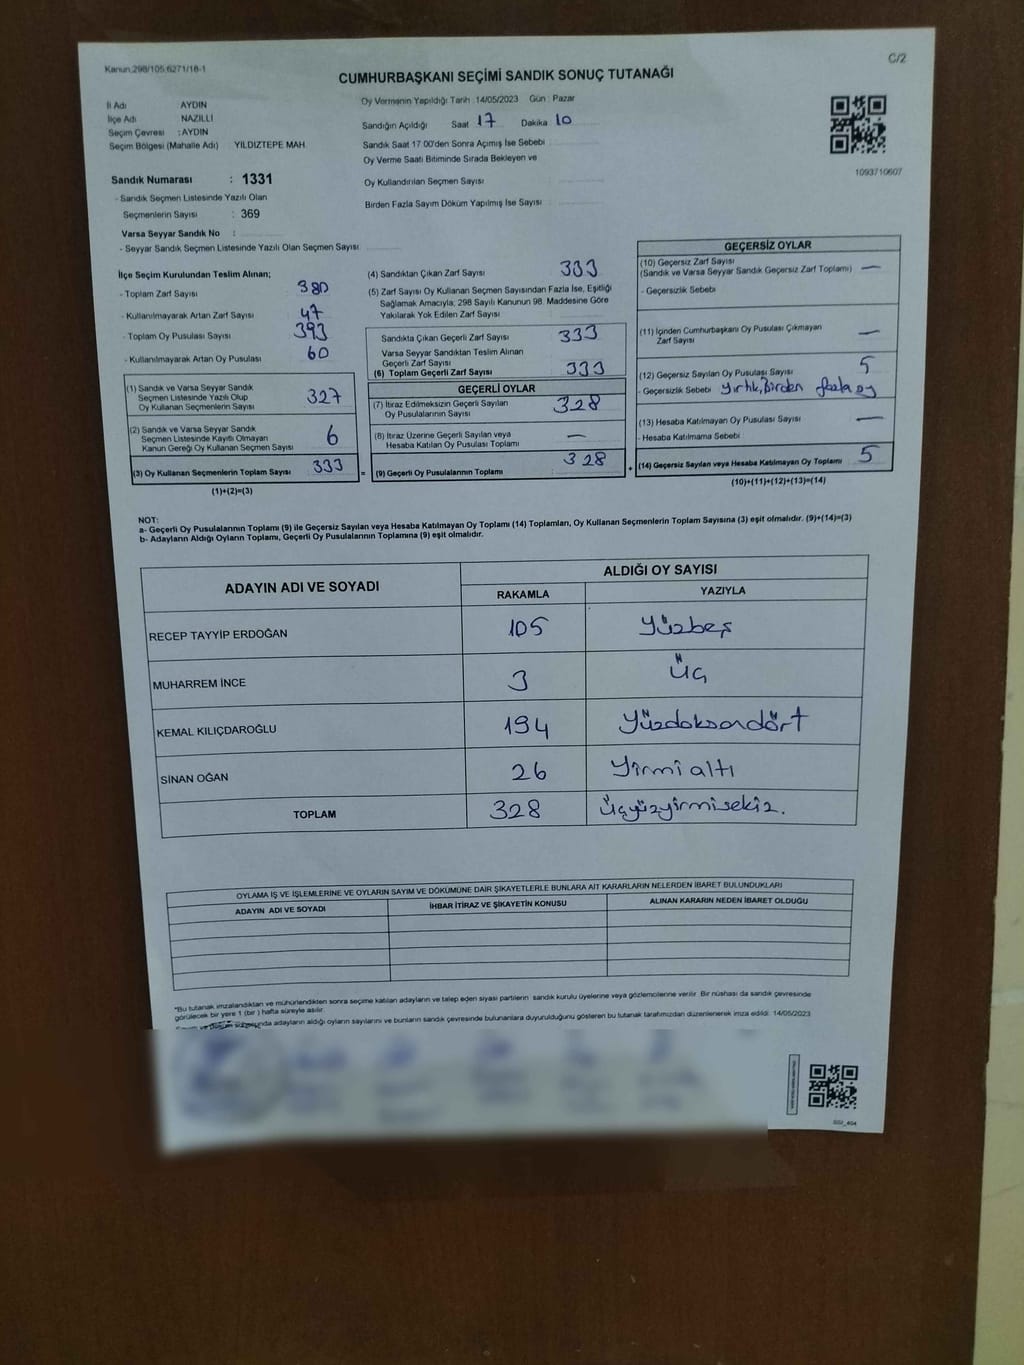 Kanun:298/105;6271/18-1
C/2
CUMHURBAŞKANI SEÇİMİ SANDIK SONUÇ TUTANAĞI
İl Adı AYDIN
İlçe Adı NAZİLLİ
Seçim Çevresi : AYDIN
Seçim Bölgesi (Mahalle Adı) YILDIZTEPE MAH.
Oy Vermenin Yapıldığı Tarih : 14/05/2023 Gün : Pazar
Sandığın Açıldığı Saat 17 Dakika 10
Sandık Saat 17.00'den Sonra Açımış İse Sebebi
Oy Verme Saati Bitiminde Sırada Bekleyen ve
Oy Kullandırılan Seçmen Sayısı
Birden Fazla Sayım Döküm Yapılmış İse Sayısı
1093710607
Sandık Numarası : 1331
- Sandık Seçmen Listesinde Yazılı Olan
Seçmenlerin Sayısı : 369
Varsa Seyyar Sandık No :
- Seyyar Sandık Seçmen Listesinde Yazılı Olan Seçmen Sayısı
İlçe Seçim Kurulundan Teslim Alınan;
- Toplam Zarf Sayısı 380
- Kullanılmayarak Artan Zarf Sayısı 47
- Toplam Oy Pusulası Sayısı 393
- Kullanılmayarak Artan Oy Pusulası 60
(1) Sandık ve Varsa Seyyar Sandık
Seçmen Listesinde Yazılı Olup
Oy Kullanan Seçmenlerin Sayısı 327
(2) Sandık ve Varsa Seyyar Sandık
Seçmen Listesinde Kayıtlı Olmayan
Kanun Gereği Oy Kullanan Seçmen Sayısı 6
(3) Oy Kullanan Seçmenlerin Toplam Sayısı 333
(1)+(2)=(3)
(4) Sandıktan Çıkan Zarf Sayısı 333
(5) Zarf Sayısı Oy Kullanan Seçmen Sayısından Fazla İse, Eşitliği
Sağlamak Amacıyla, 298 Sayılı Kanunun 98. Maddesine Göre
Yakılarak Yok Edilen Zarf Sayısı
Sandıkta Çıkan Geçerli Zarf Sayısı 333
Varsa Seyyar Sandıktan Teslim Alınan
Geçerli Zarf Sayısı
(6) Toplam Geçerli Zarf Sayısı 333
GEÇERLİ OYLAR
(7) İtiraz Edilmeksizin Geçerli Sayılan
Oy Pusulalarının Sayısı 328
(8) İtiraz Üzerine Geçerli Sayılan veya
Hesaba Katılan Oy Pusulası Toplamı —
= (9) Geçerli Oy Pusulalarının Toplamı 328
GEÇERSİZ OYLAR
(10) Geçersiz Zarf Sayısı
(Sandık ve Varsa Seyyar Sandık Geçersiz Zarf Toplamı) —
- Geçersizlik Sebebi
(11) İçinden Cumhurbaşkanı Oy Pusulası Çıkmayan
Zarf Sayısı —
(12) Geçersiz Sayılan Oy Pusulası Sayısı 5
- Geçersizlik Sebebi Yırtık, Birden fazla oy
(13) Hesaba Katılmayan Oy Pusulası Sayısı —
- Hesaba Katılmama Sebebi
+ (14) Geçersiz Sayılan veya Hesaba Katılmayan Oy Toplamı 5
(10)+(11)+(12)+(13)=(14)
NOT:
a- Geçerli Oy Pusulalarının Toplamı (9) ile Geçersiz Sayılan veya Hesaba Katılmayan Oy Toplamı (14) Toplamları, Oy Kullanan Seçmenlerin Toplam Sayısına (3) eşit olmalıdır. (9)+(14)=(3)
b- Adayların Aldığı Oyların Toplamı, Geçerli Oy Pusulalarının Toplamına (9) eşit olmalıdır.
ADAYIN ADI VE SOYADI ALDIĞI OY SAYISI
RAKAMLA YAZIYLA
RECEP TAYYİP ERDOĞAN 105 Yüzbeş
MUHARREM İNCE 3 Üç
KEMAL KILIÇDAROĞLU 194 Yüzdoksandört
SİNAN OĞAN 26 Yirmi altı
TOPLAM 328 Üçyüzyirmisekiz.
OYLAMA İŞ VE İŞLEMLERİNE VE OYLARIN SAYIM VE DÖKÜMÜNE DAİR ŞİKAYETLERLE BUNLARA AİT KARARLARIN NELERDEN İBARET BULUNDUKLARI
ADAYIN ADI VE SOYADI İHBAR İTİRAZ VE ŞİKAYETİN KONUSU ALINAN KARARIN NEDEN İBARET OLDUĞU
*Bu tutanak imzalandıktan ve mühürlendikten sonra seçime katılan adayların ve talep eden siyasi partilerin sandık kurulu üyelerine veya gözlemcilerine verilir. Bir nüshası da sandık çevresinde
görülecek bir yere 1 (bir) hafta süreyle asılır.
adayların aldığı oyların sayılarını ve bunların sandık çevresinde bulunanlara duyurulduğunu gösteren bu tutanak tarafımızdan düzenlenerek imza edildi. 14/05/2023